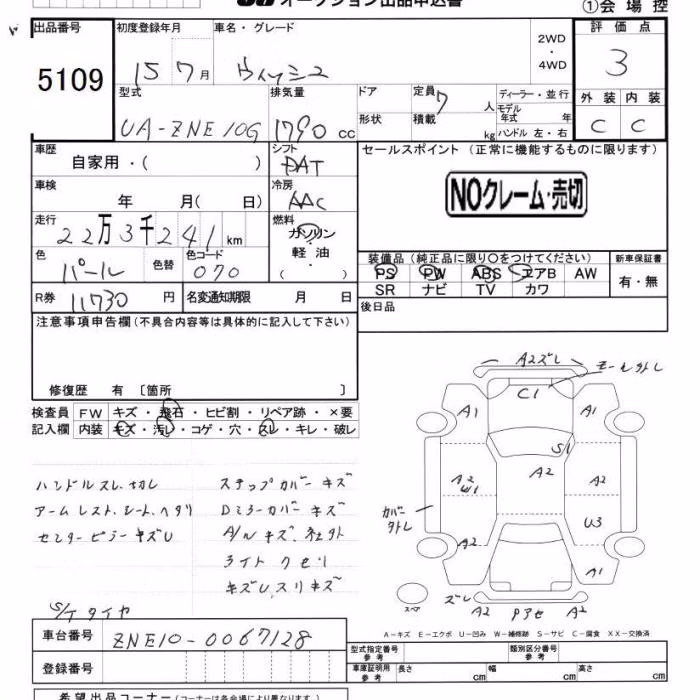 オークション出品申込書
①会場控
出品番号 初度登録年月 車名・グレード 評価点
5109 15 7月 ウィッシュ 2WD ・ 4WD 3
型式 排気量 ドア 定員 7人 ディーラー・並行 外装 内装
UA-ZNE10G 1790cc 形状 積載 kg モデル年式 年 ハンドル 左・右 C C
車歴 自家用・( ) シフト DAT セールスポイント (正常に機能するものに限ります)
車検 年 月( 日) 冷房 AAC NOクレーム・売切
走行 22万3千241km 燃料 ガソリン 軽油 ( )
色 パール 色替 色コード 070 装備品 (純正品に限り○をつけてください) 新車保証書
PS PW ABS エアB AW 有・無
SR ナビ TV カワ
R券 11730円 名変通知期限 月 日 後日品
注意事項申告欄 (不具合内容等は具体的に記入して下さい)
修復歴 有 〔箇所 〕
検査員 FW キズ・飛石・ヒビ割・リペア跡・×要
記入欄 内装 キズ・汚レ・コゲ・穴・スレ・キレ・破レ
ハンドルスレ、切レ ステップカバーキズ
アームレスト、シート、ヘタリ Dミラーカバーキズ
センターピラーキズU A/Wキズ、
ライトクモリ
キズU、スリキズ
S/Tタイヤ
A2ズレ
モールタトレ
C1
A1 A1
S1
A2 W1 A2 A2
カバータトレ
U3
A2
A1
スペア
ズレ A2 Pアセ A2
A-キズ E-エクボ U-凹み W-補修跡 S-サビ C-腐食 XX-交換済
車台番号 ZNE10-0067128
型式指定番号 参考 類別区分番号 参考
登録番号 車庫証明用 参考 長さ cm 幅 cm 高さ cm
希望出品コーナー (コーナーは各会場により異なります)